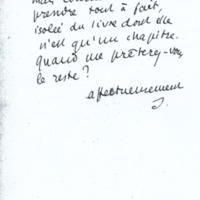 prendre tout à fait,
isolée du livre dont elle
n'est qu'un chapitre.
Quand me prêterez-vous
le reste ?
affectueusement
J.